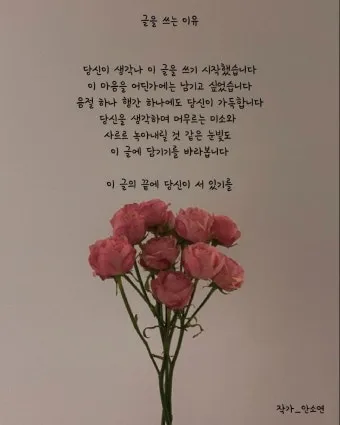 글을 쓰는 이유
당신이 생각나 이 글을 쓰기 시작했습니다
이 마음을 어딘가에는 남기고 싶었습니다
음절 하나 행간 하나에도 당신이 가득합니다
당신을 생각하며 머무르는 미소와
사르르 녹아내릴 것 같은 눈빛도
이 글에 담기기를 바라봅니다
이 글의 끝에 당신이 서 있기를
작가_안소연